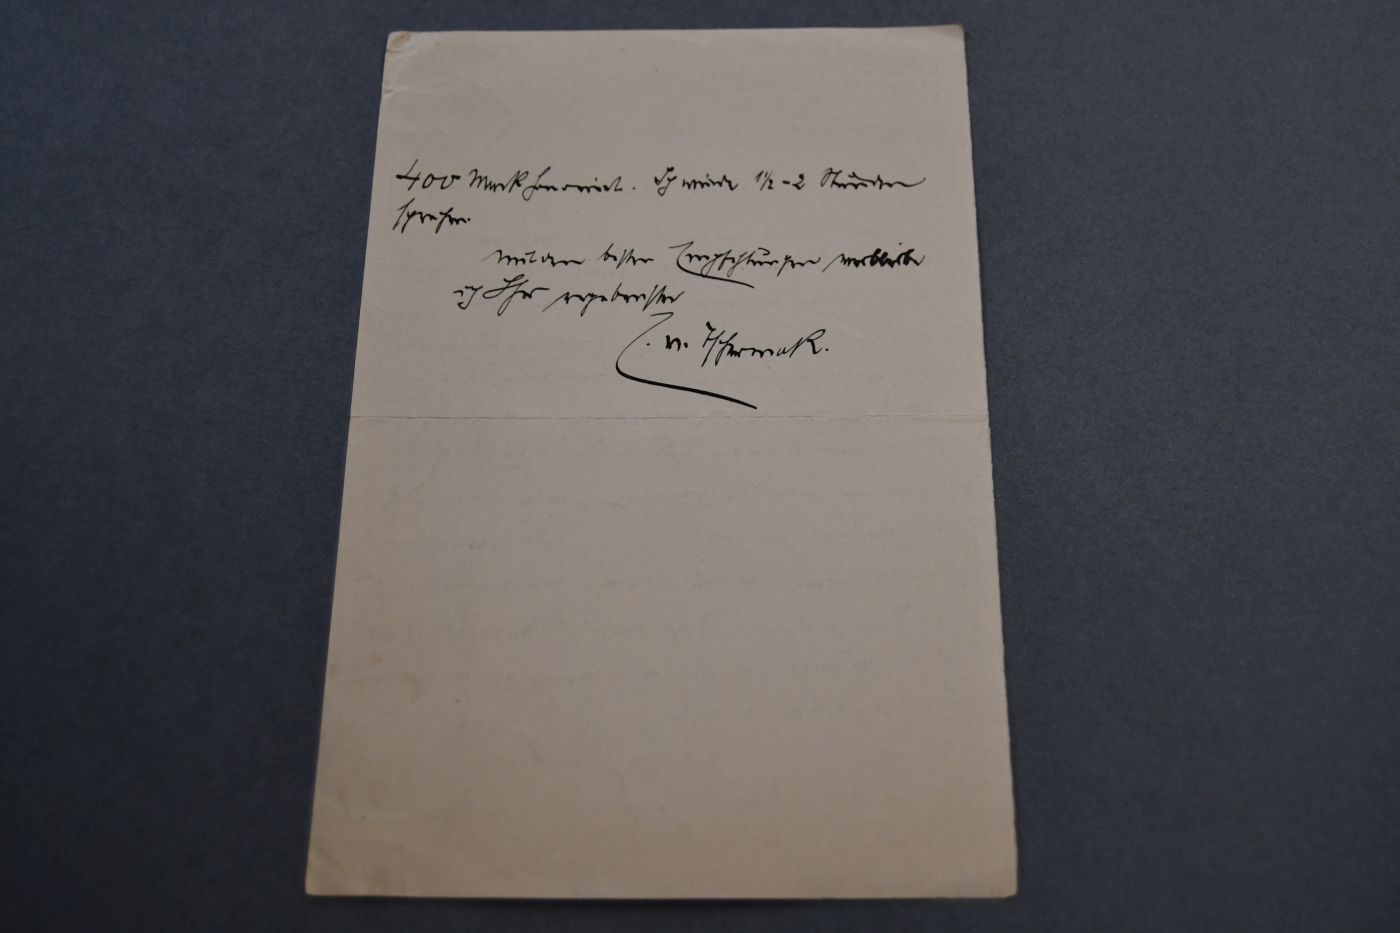 400 Mark Honorar. Ich würde 1½-2 Stunden
sprechen.
Mit den besten Empfehlungen verbleibe
ich Ihr ergebenster
E. v. Tschermak.